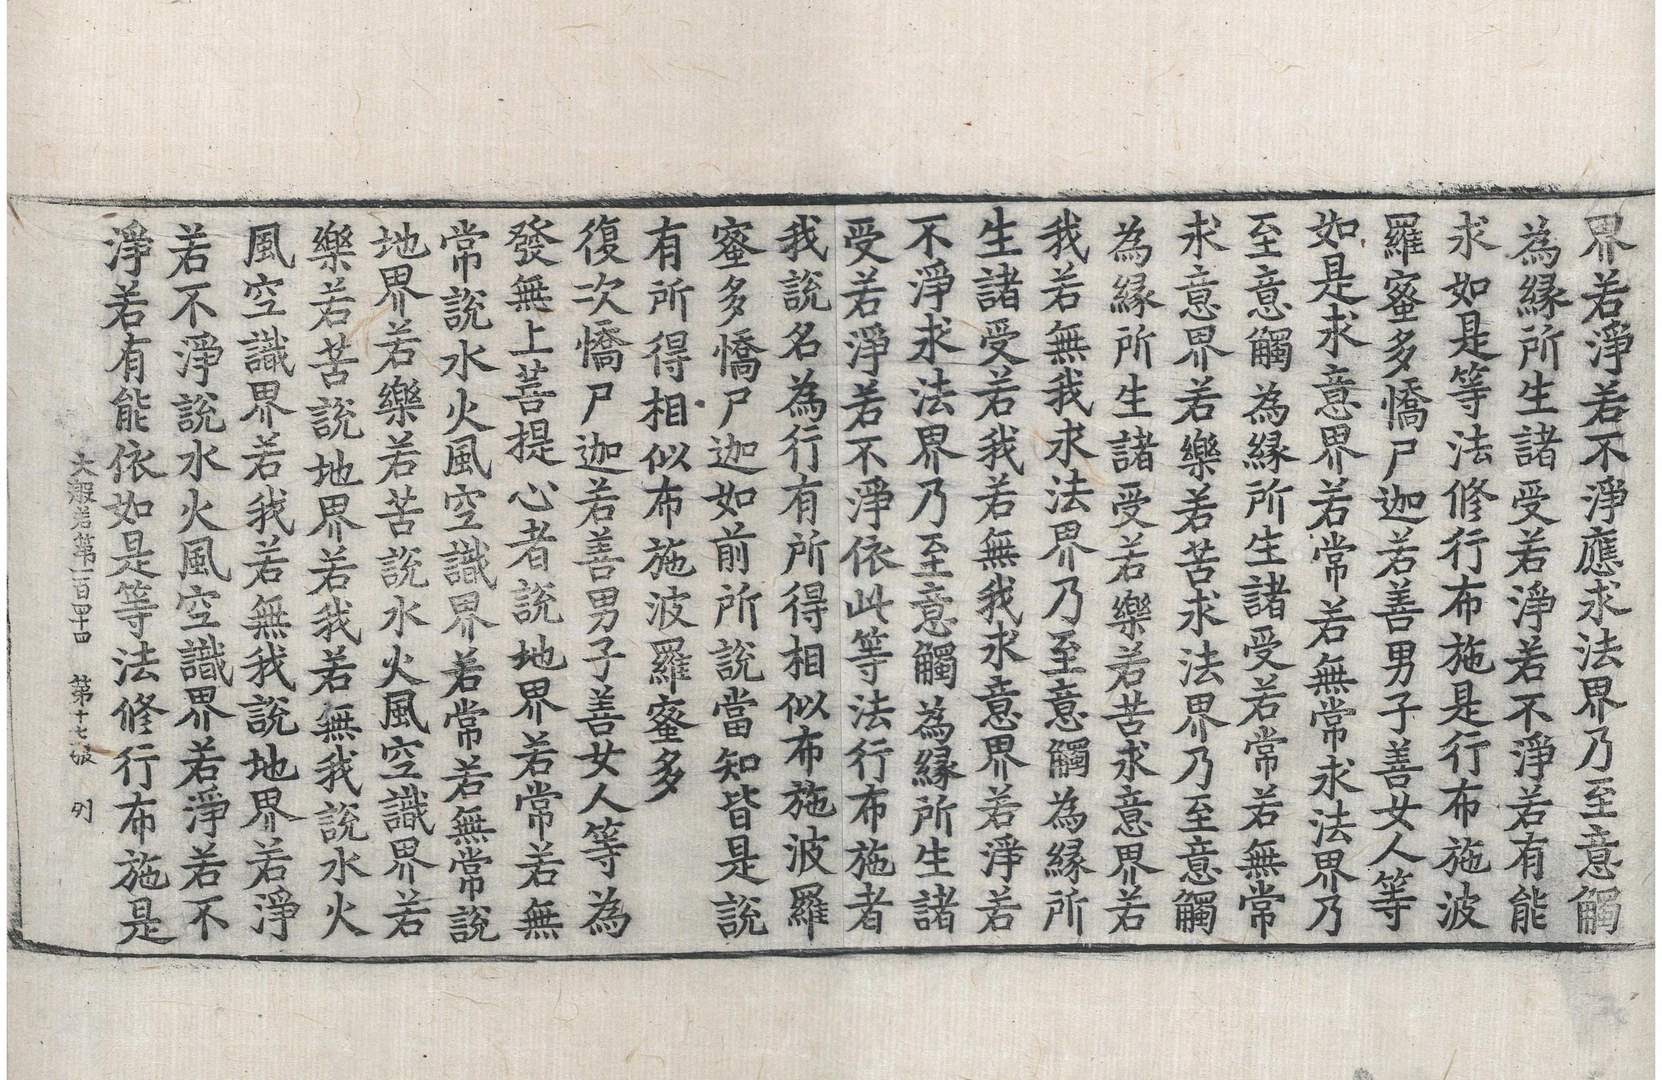 界若淨若不淨應求法界乃至意觸
為緣所生諸受若淨若不淨若有能
求如是等法修行布施是行布施波
羅蜜多憍尸迦若善男子善女人等
如是求意界若常若無常求法界乃
至意觸為緣所生諸受若常若無常
求意界若樂若苦求法界乃至意觸
為緣所生諸受若樂若苦求意界若
我若無我求法界乃至意觸為緣所
生諸受若我若無我求意界若淨若
不淨求法界乃至意觸為緣所生諸
受若淨若不淨依此等法行布施者
我說名為行有所得相似布施波羅
蜜多憍尸迦如前所說當知皆是說
有所得相似布施波羅蜜多
復次憍尸迦若善男子善女人等為
發無上菩提心者說地界若常若無
常說水火風空識界若常若無常說
地界若樂若苦說水火風空識界若
樂若苦說地界若我若無我說水火
風空識界若我若無我說地界若淨
若不淨說水火風空識界若淨若不
淨若有能依如是等法修行布施是
大般若第一百四十四 第十七張 列